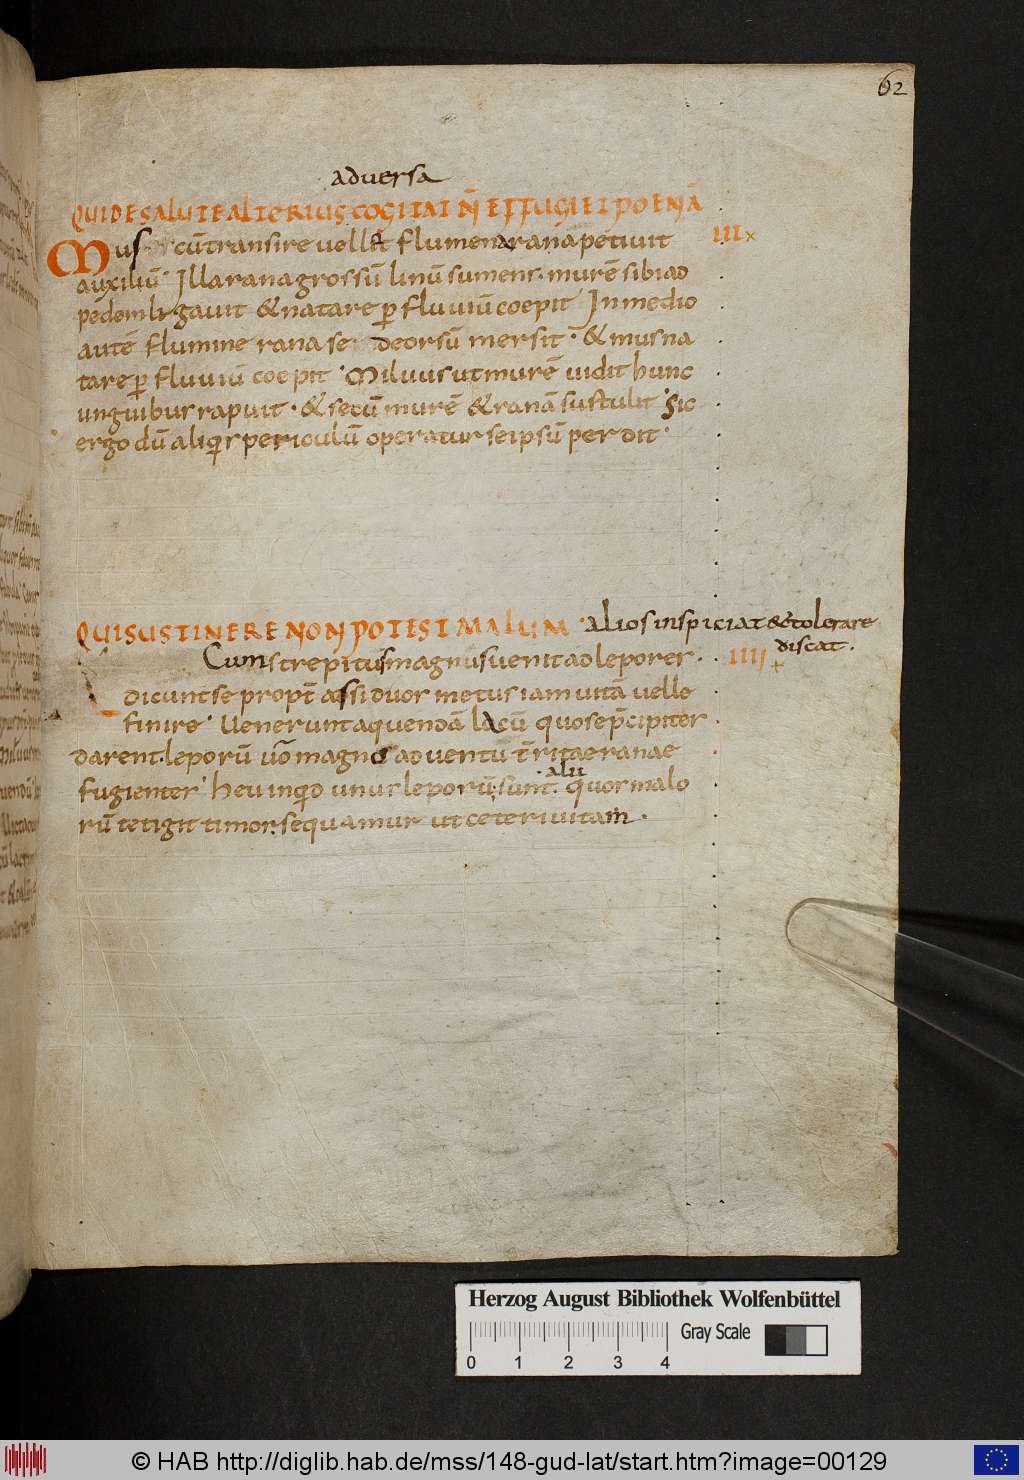 62
adversa
QUIDESALUTEALTERIUS COGITAT N̄ EFFUGIET POENĀ
MUS cū transire vellet flumen a rana petivit III
auxiliū Illa rana grossū linū sumens murē sibi ad
pedem ligavit & natare p fluviū coepit In medio
autē flumine rana se deorsū mersit & mus na
tare p fluviū coepit Milvus ut murē vidit hunc
unguibus rapuit & secū murē & ranā sustulit Sic
ergo dū aliqis periculū operatur seipsū perdit
QUI SUSTINERE NON POTEST MALUM alios inspiciat & tolerare
discat.
Cum strepitus magnus venit ad lepores IIII
dicunt se propt̄ assiduos metus iam vitā velle
finire Venerunt aquendā lacū quo se p̄cipites
darent leporū vō magno adventu t̄ritae ranae
alii
fugientes heu inqid unus leporū sunt quos malo
rū tetigit timor sequamur ut ceteri vitam
Herzog August Bibliothek Wolfenbüttel
Gray Scale
0 1 2 3 4
© HAB http://diglib.hab.de/mss/148-gud-lat/start.htm?image=00129